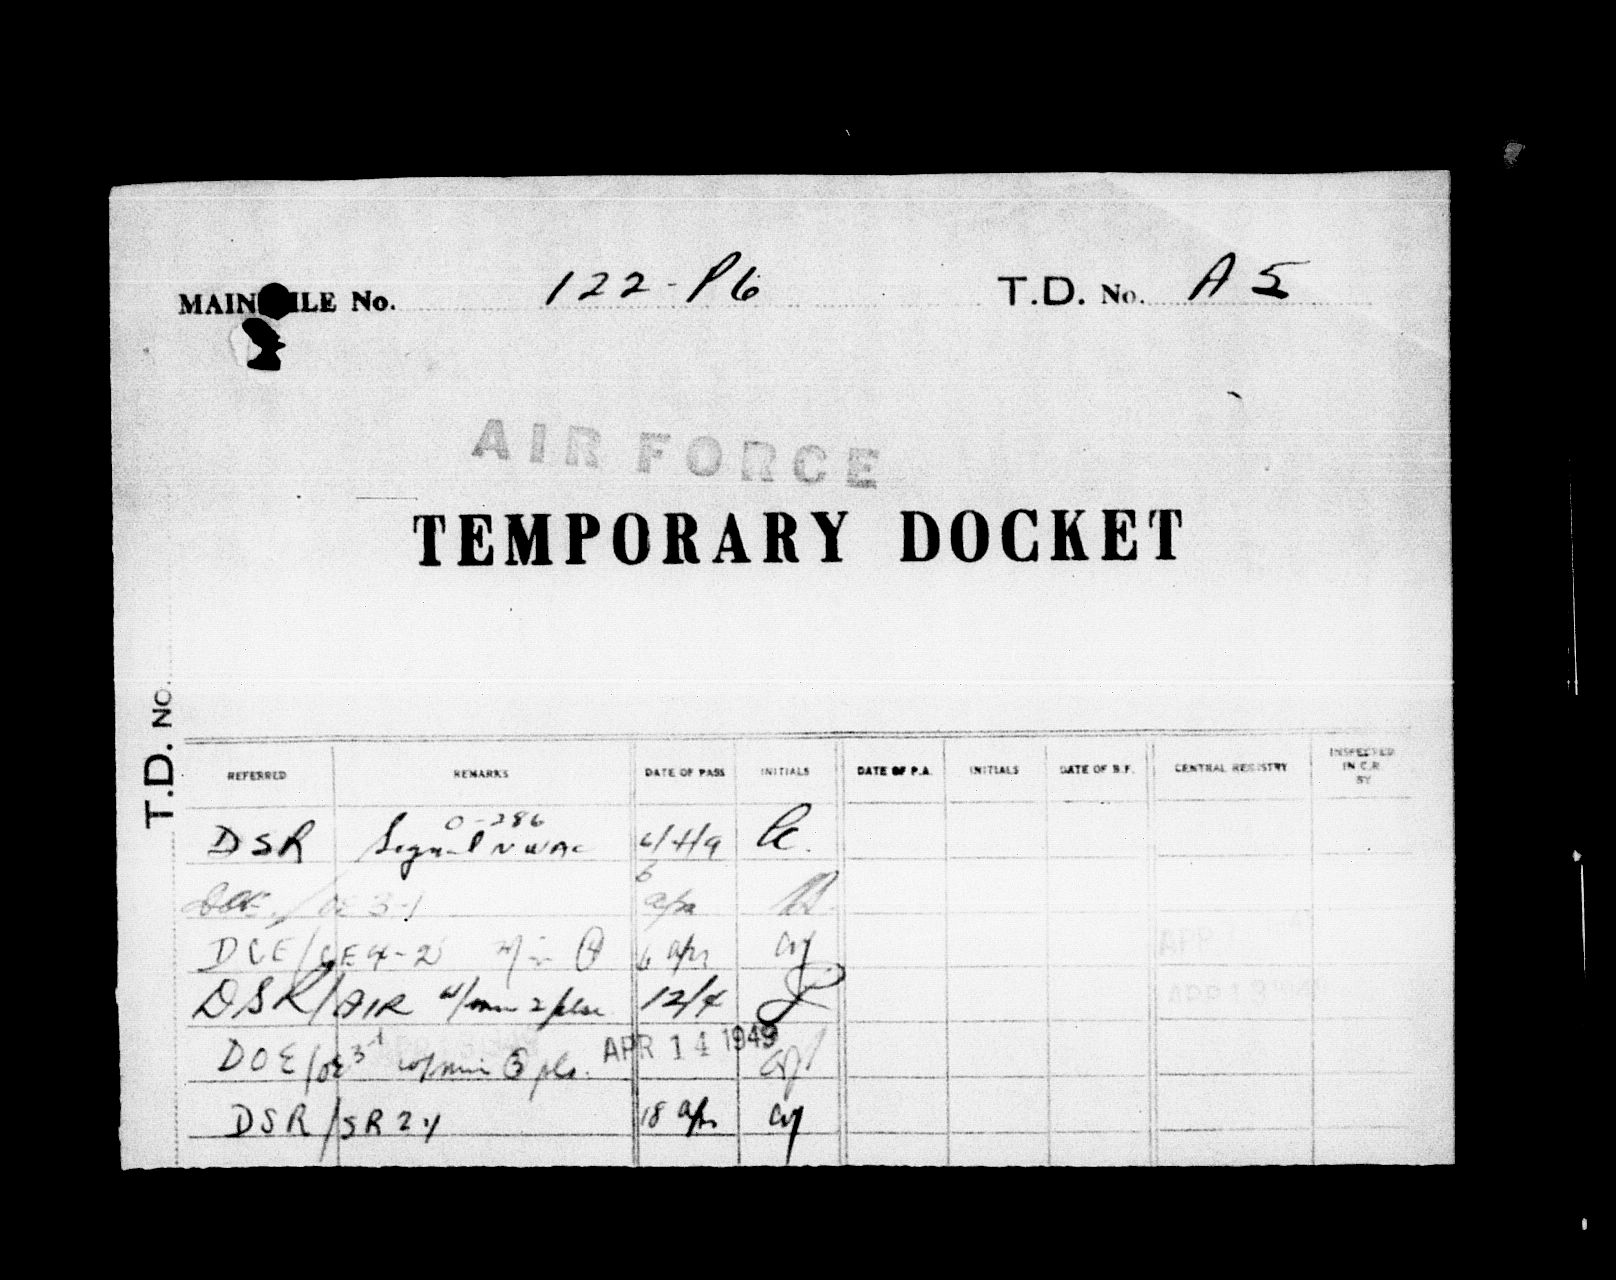 MAIN FILE No. 122-P6 T.D. No. A5
AIR FORCE
TEMPORARY DOCKET
T.D. NO.
REFERRED REMARKS DATE OF PASS INITIALS DATE OF P.A. INITIALS DATE OF B.F. CENTRAL REGISTRY INSPECTED IN C.R. BY
O-286
DSR Signal NWAC 6/4/9
6
OE 3-1 apr
DCE/CE4-2 6 apr
DSR/AIR w/min 2 please 12/4
DOE/OE3-1 w/min 3 pls. APR 14 1949
DSR/SR2 18 apr